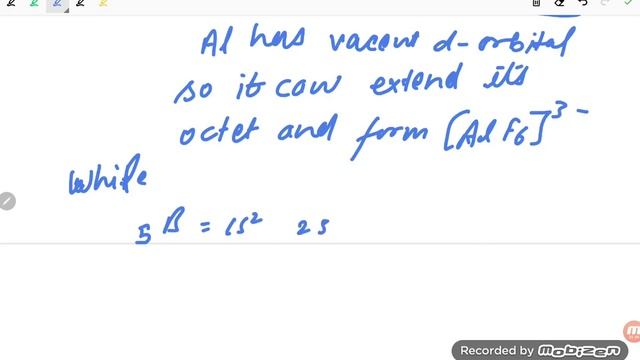 Al has vacent d-orbital
so it can extend it's
octet and form [AlF6]³⁻
While
₅B = 1s² 2s
Recorded by mobizen